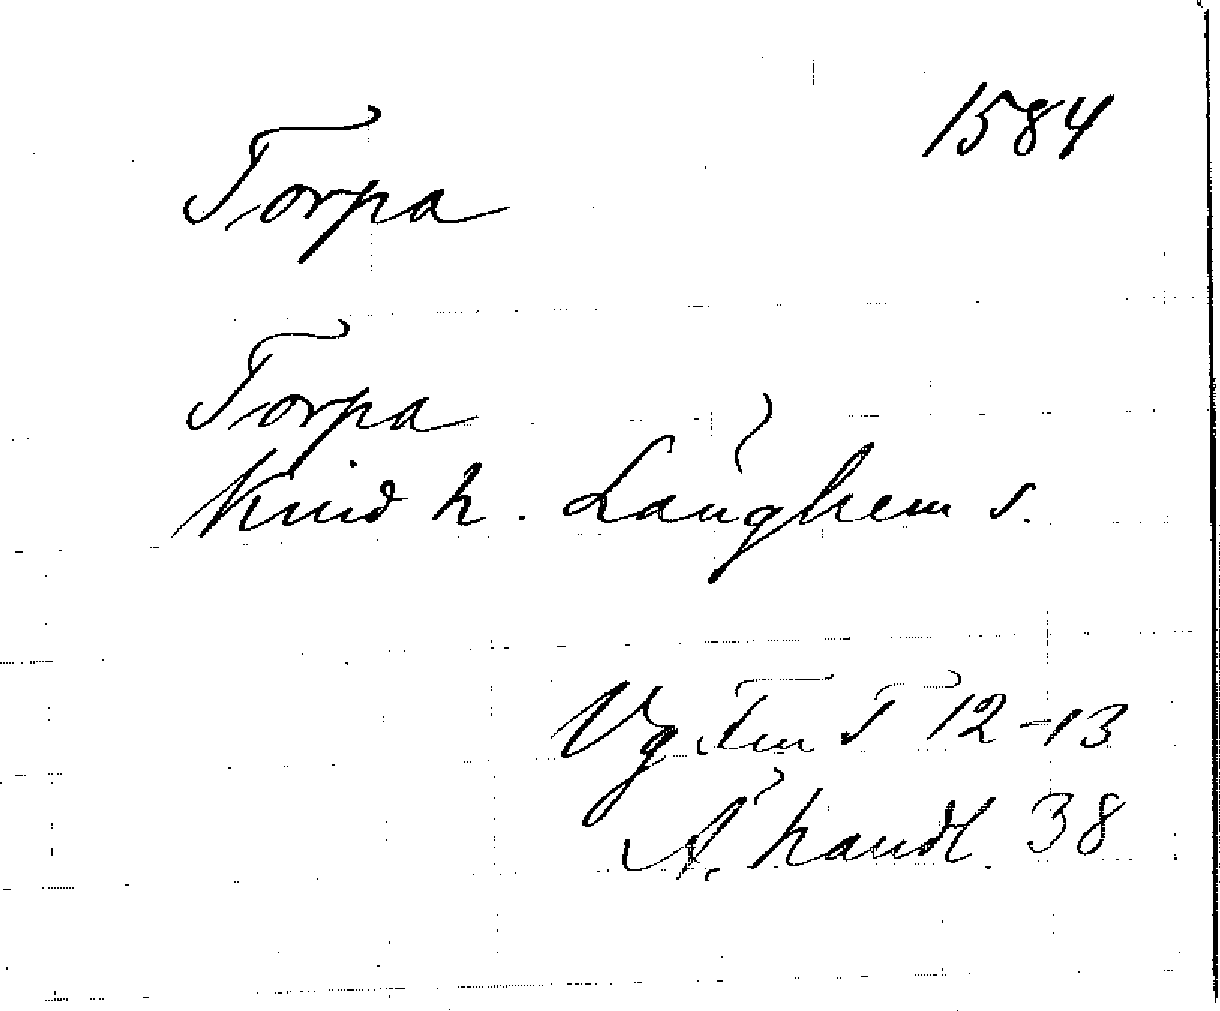 1584
Torpa
Torpa
Kind h. Långhem s.
Vg Fm T 12-13
Å. handl. 38